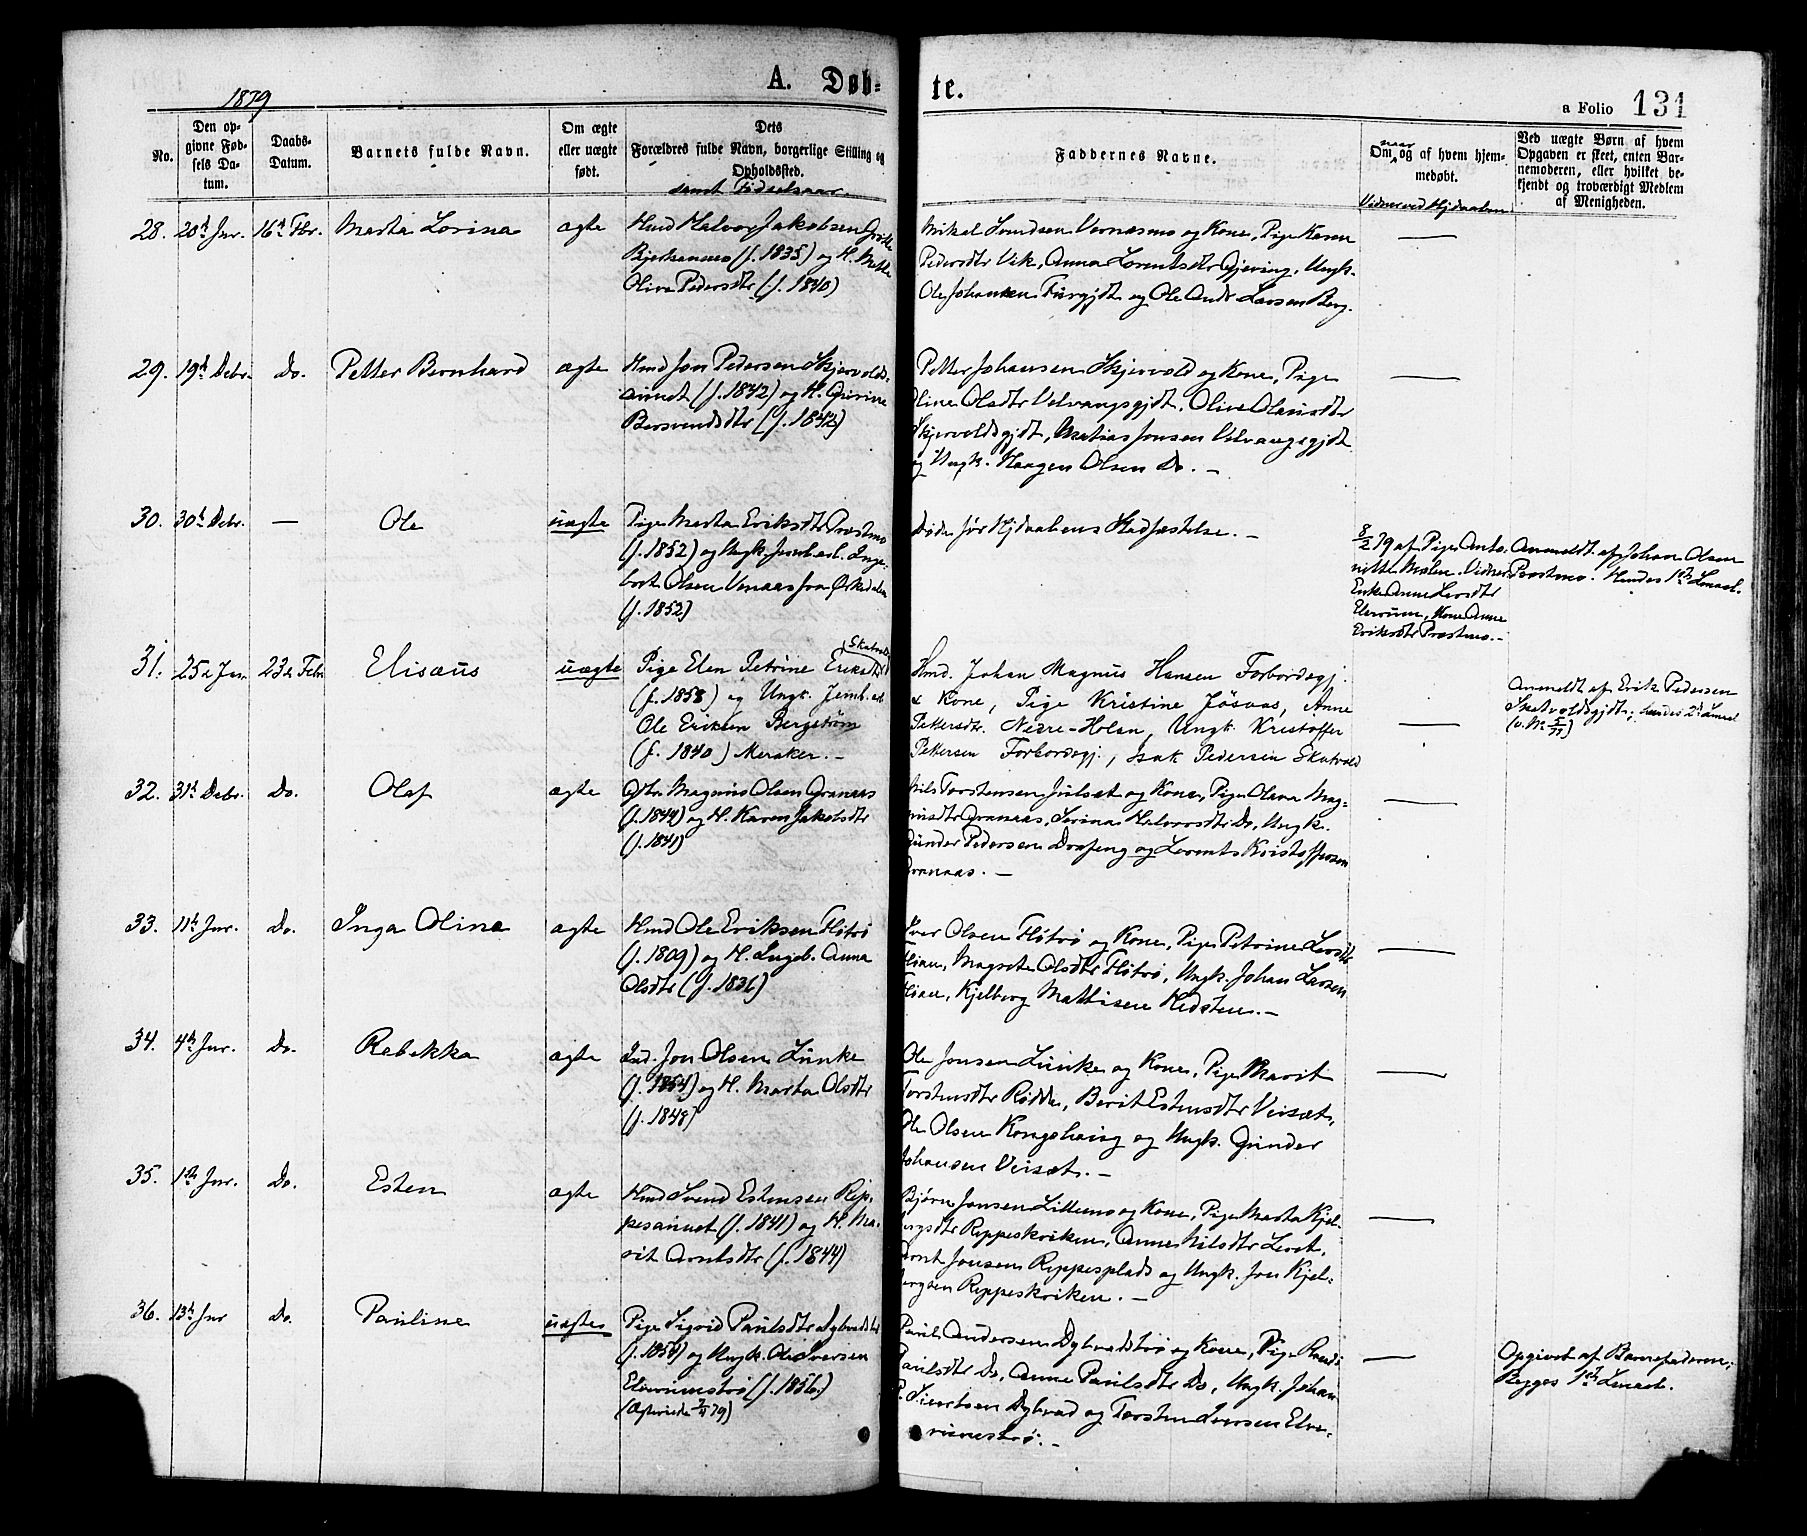 1879
A. Døb-
te.
a Folio 131
No.
Den op-
givne Fød-
sels Da-
tum.
Daabs-
Datum.
Barnets fulde Navn.
Om ægte
eller uægte
født.
Dets
Forældres fulde Navn, borgerlige Stilling og
Opholdssted.
samt Fødselsaar.
Faddernes Navne.
Om naar og af hvem hjem-
medøbt.
Vidner ved Hjdaaben
Ved uægte Børn af hvem
Opgaven er skeet, enten Bar-
nemoderen, eller hvilket be-
kjendt og troværdigt Medlem
af Menigheden.
28. 20d Jnr. 16d Fbr. Marta Lorina ægte
Hmd Halvor Jakobsen
(f. 1835) og H. Mette
Oliva Pedersdtr (f. 1840)
Mikal Svendsen Vernæsmo og Kone, Pige Karen
Pedersdtr Vik, Anna Lorentsdtr Gjeving, Ungk.
Ole Johansen og Ole Andr Larsen Berg.
29. 19d Debr. Do. Petter Bernhard ægte
Hmd Jon Pedersen Skjervolds-
aunet (f. 1842) og H. Gurine
Bersvendsdtr (f. 1842)
Petter Johansen Skjervold og Kone, Pige
Olsdtr Velvangsgjdt, Olive Olausdtr
Skjervoldsgjdt, Matias Jonsen Velvangsgjdt
og Ungk. Haagen Olsen Do. —
30. 30d Debr. — Ole uægte
Pige Marta Eriksdtr Præstmo
(f. 1852) og Ungk. Jernb.arb. Inge-
bret Olsen fra Ørkedalen
(f. 1852)
Døde før Hjdaabens Stadfæstelse. —
8/2 79 af Pige Anto-
nette Malen. Vidner
Enke Anne Larsdtr
Elverum, Kone Anne
Eriksdtr Præstmo. —
Anmeldt af Johan Olsen
Præstmo. Hendes 1ste Lmaal.
31. 25d Jan 23d Febr Elisæus uægte
Pige Elen Petrine Eriksdtr Skatvold
(f. 1858) og Ungk. Jernb.arb
Ole Eriksen Bergstrøm
(f. 1840) Meraker. —
Hmd. Johan Magnus Hansen Forbordsgj.
& Kone, Pige Kristine Jøsvas, Anne
Pettersdtr. Nedre-Holan, Ungk. Kristoffer
Pettersen Forbordsgj., Isak Pedersen Skatvold
Anmeldt af Erik Pedersen
Skatvoldsgjdt; hendes 2d Lmaal
32. 31d Debr. Do. Olaf ægte
Gbr. Magnus Olsen Granaas
(f. 1842) og H. Karen Jakobsdtr
(f. 1841)
Nils Torstensen Julset og Kone, Pige Olava Mag-
nusdtr Granaas, Serina Halvorsdtr Do, Ungk.
Gunder Pedersen Dræfeng og Lorents Kristoffersen
Granaas. —
33. 11d Jnr. Do. Inga Olina ægte
Hmd Ole Eriksen Fløtrø
(f. 1809) og H. Ingeb. Anna
Olsdtr (f. 1836)
Iver Olsen Fløtrø og Kone, Pige Petrine Larsdtr
Hiau, Magrete Olsdtr Fløtrø, Ungk. Johan Larsen
Hiau, Kjelberg Mathisen Hedsten. —
34. 4d Jnr. Do. Rebekka ægte
Ind. Jon Olsen Lunke
(f. 1854) og H. Marta Olsdtr
(f. 1848)
Ole Jonsen Lunke og Kone, Pige Marit
Torstensdtr Rødde, Berit Estensdtr Veiset,
Ole Olsen Kongshaug og Ungk. Gunder
Johansen Veiset. —
35. 1ste Jnr. Do. Esten ægte
Hmd Svend Estensen Rep-
pesaunet (f. 1841) og H. Ma-
rit Arntsdtr (f. 1844)
Bjørn Jonsen Lillemo og Kone, Pige Marta Kjel-
bergsdtr Reppeskriken, Anne Nilsdtr
Arnt Jonsen Reppesplads og Ungk. Jon Kjel-
bergsen Reppeskriken. —
36. 13d Jnr Do. Pauline uægte
Pige Sigrid Paulsdtr Dybvadstrø
(f. 1854) og Ungk. Ole Iversen
Elverumstrø (f. 1856.)
Paul Andersen Dybvadstrø og Kone, Pige Randi
Paulsdtr Do, Anne Paulsdtr Do, Ungk. Johan
P. Sivertsen Dybvad og Torsten Iversen Elve-
rumstrø. —
Opgivet af Barnefaderen;
Begges 1ste Lmaal.